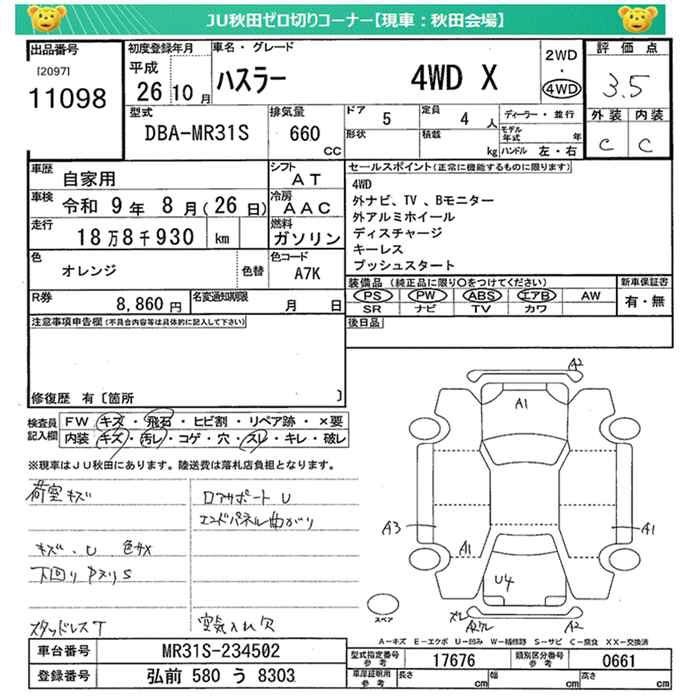 JU秋田ゼロ切りコーナー【現車：秋田会場】
出品番号
[2097]
11098
初度登録年月
平成
26 10 月
車名・グレード
ハスラー 4WD X
2WD
・
4WD
評価点
3.5
外装 内装
C C
型式
DBA-MR31S
排気量
660
CC
ドア
5
定員
4 人
形状
積載
kg
ディーラー・並行
モデル年式 年
ハンドル 左・右
車歴
自家用
シフト
AT
車検
令和 9 年 8 月(26 日)
冷房
AAC
走行
18万8千930 km
燃料
ガソリン
色
オレンジ
色替
色コード
A7K
R券
8,860 円
名変通知期限
月 日
セールスポイント(正常に機能するものに限ります)
4WD
外ナビ、TV 、Bモニター
外アルミホイール
ディスチャージ
キーレス
プッシュスタート
装備品 (純正品に限り○をつけてください)
PS PW ABS エアB AW
SR ナビ TV カワ
新車保証書
有・無
後日品
注意事項申告欄(不具合内容等は具体的に記入して下さい)
修復歴 有〔箇所 〕
検査員記入欄
FW キズ・飛石・ヒビ割・リペア跡・×要
内装 キズ・汚レ・コゲ・穴・スレ・キレ・破レ
※現車はJU秋田にあります。陸送費は落札店負担となります。
荷室キズ
キズ・U 色サメ
下回りサビS
スタッドレスT
ロアサポートU
エンドパネル曲がり
空気入レ欠
A2
A1
A3
A1
A1
U4
スペア
スレ
A2ワレ
A2
A-キズ E-エクボ U-凹み W-補修跡 S-サビ C-腐食 XX-交換済
車台番号
MR31S-234502
登録番号
弘前 580 う 8303
型式指定番号
参考
17676
類別区分番号
参考
0661
車庫証明用
参考
長さ cm
幅 cm
高さ cm